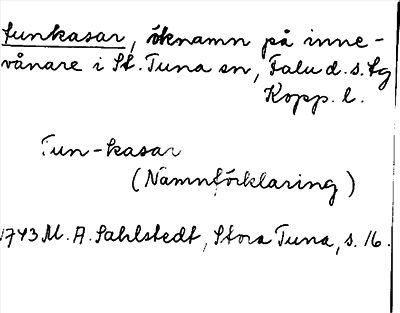 tunkasar, öknamn på inne-
vånare i St. Tuna sn, Falu d. s. fg
Kopp. l.
Tun-kasar
(Namnförklaring)
1743 M. A. Sahlstedt, Stora Tuna, s. 16.